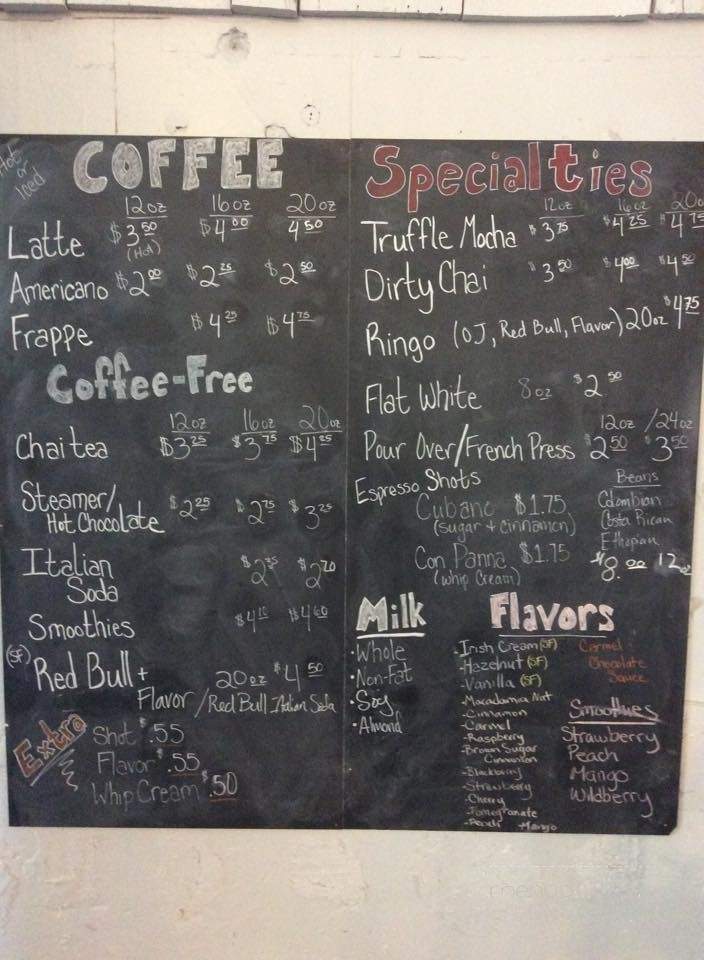 Hot or Iced
COFFEE
12oz 16oz 20oz
Latte $3.50 $4.00 4.50
(Hot)
Americano $2.00 $2.25 $2.50
Frappe $4.25 $4.75
Coffee-Free
12oz 16oz 20oz
Chai tea $3.25 $3.75 $4.25
Steamer/ $2.25 $2.75 $3.25
Hot Chocolate
Italian Soda $2.70
Smoothies $4.10 $4.60
(SF) Red Bull + 20oz $4.50
Flavor /Red Bull Italian Soda
Extra
Shot $.55
Flavor $.55
Whip Cream $.50
Specialties
12oz 16oz 20oz
Truffle Mocha $3.75 $4.25 $4.75
Dirty Chai $3.50 $4.00 $4.50
Ringo (OJ, Red Bull, Flavor) 20oz $4.75
Flat White 8oz $2.50
12oz / 24oz
Pour Over/French Press $2.50 $3.50
Espresso Shots
Cubano $1.75
(sugar + cinnamon)
Con Panna $1.75
(whip Cream)
Beans
Colombian
Costa Rican
Ethopian
$8.00 12oz
Milk
• Whole
• Non-Fat
• Soy
• Almond
Flavors
-Irish Cream (SF)
-Hazelnut (SF)
-Vanilla (SF)
-Macadamia Nut
-Cinnamon
-Carmel
-Raspberry
-Brown Sugar
Cinnamon
-Blackberry
-Strawberry
-Cherry
-Pomegranate
-Peach -Mango
Carmel
Chocolate
Sauce
Smoothies
Strawberry
Peach
Mango
Wildberry